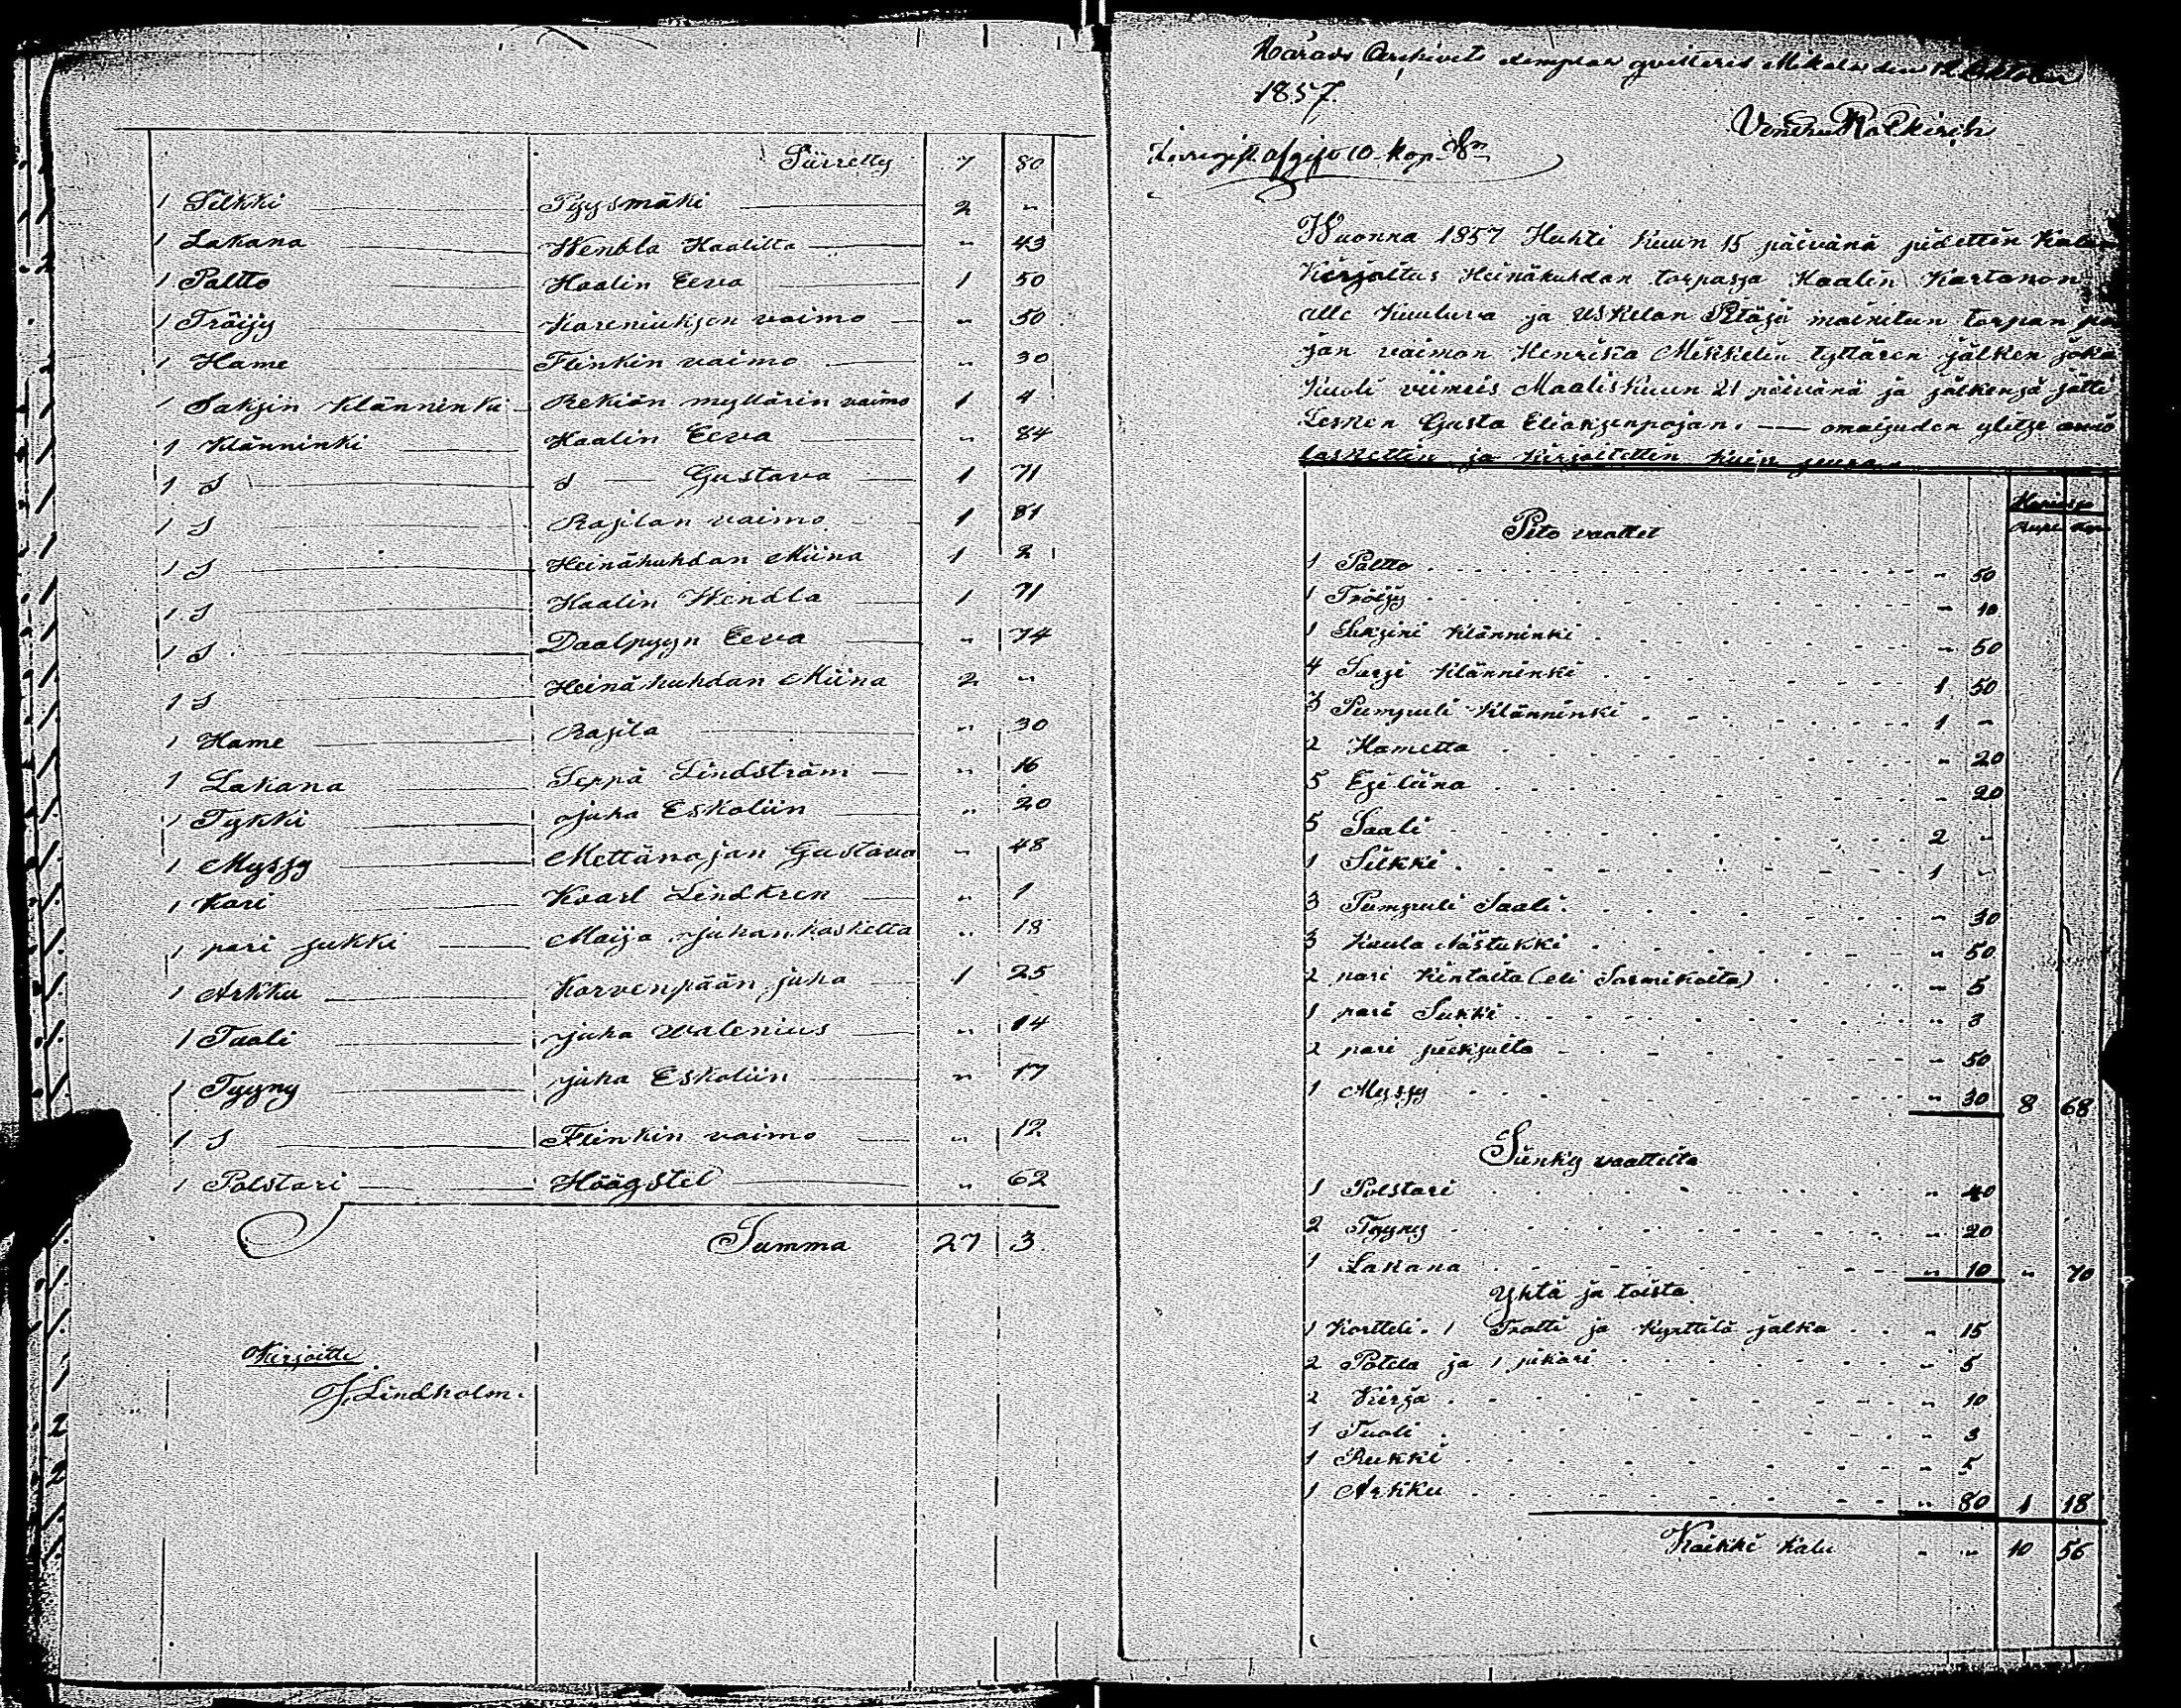 Siirretty 7 80
1 Silkki Pyysmäki 2 "
1 Lakana Wendla Haalilta " 43
1 Paltto Haalin Eeva 1 50
1 Tröijy Kareniuksen vaimo " 50
1 Hame Flinkin vaimo " 30
1 Saksin Klänninki Rekiön myllärin vaimo 1 4
1 Klänninki Haalin Eeva " 84
1 S S Gustava 1 71
1 S Rajilan vaimo 1 81
1 S Heinähuhdan Miina 1 2
1 S Haalin Wendla 1 71
1 S Daalpyyn Eeva " 74
1 S Heinähuhdan Miina 2 "
1 Hame Rajila " 30
1 Lakana Seppä Lindström " 16
1 Tykki Juha Eskoliin " 20
1 Myssy Mettänojan Gustava " 48
1 Kori Kvarl Lindkren " 1
1 pari sukki Maija Juhankoskelta " 18
1 Arkku Korvenpään Juha 1 25
1 Tuoli Juha Walenius " 14
1 Tyyny Juha Eskoliin " 17
1 S Flinkin vaimo " 12
1 Polstari Höögstel " 62
Summa 27 3
Kirjoitti
J. Lindholm.
Härads Arkivets exemplar qvitteras den 12 Oktober
1857.
afgift 10 kop Sr
Wuonna 1857 Huhti Kuun 15 päivänä pidettin
Kirjoitus Heinähuhdan torpassa Haalin Kartanon
alle Kuuluva ja Uskelan Pitäjä mainitun torpan
jän vaimon Henrika Mikkelin tyttären jälken joka
Kuoli viimeis Maaliskuun 21 päivänä ja jälkensä jätti
Lesken Gusta Eliaksenpojan. — omaisuden ylitze
laskettin ja kirjoitettin kuin seuraa
Pito vaattet
1 Paltto " 50
1 Tröijy " 10
1 Saksini Klänninki " 50
4 Sarsi Klänninki 1 50
3 Pumpuli Klänninki 1 "
2 Hametta " 20
5 Esiliina " 20
5 Saali 2 "
1 Silkki 1 "
3 Pumpuli Saali " 30
3 Kaula Nästukki " 50
2 pari Kintaita (eli Sormikoita) " 5
1 pari Sukki " 3
2 pari pieksuita " 50
1 Myssy " 30 8 68
Siinky vaatteita
1 Polstari " 40
2 Tyyny " 20
1 Lakana " 10 " 70
Yhtä ja toista
1 Kortteli. 1 Tratti ja Kynttilä jalka " 15
2 Potela ja 1 pikari " 5
2 Kirja " 10
1 Tuoli " 3
1 Rukki " 5
1 Arkku " 80 1 18
Kaikki kalu " " 10 56